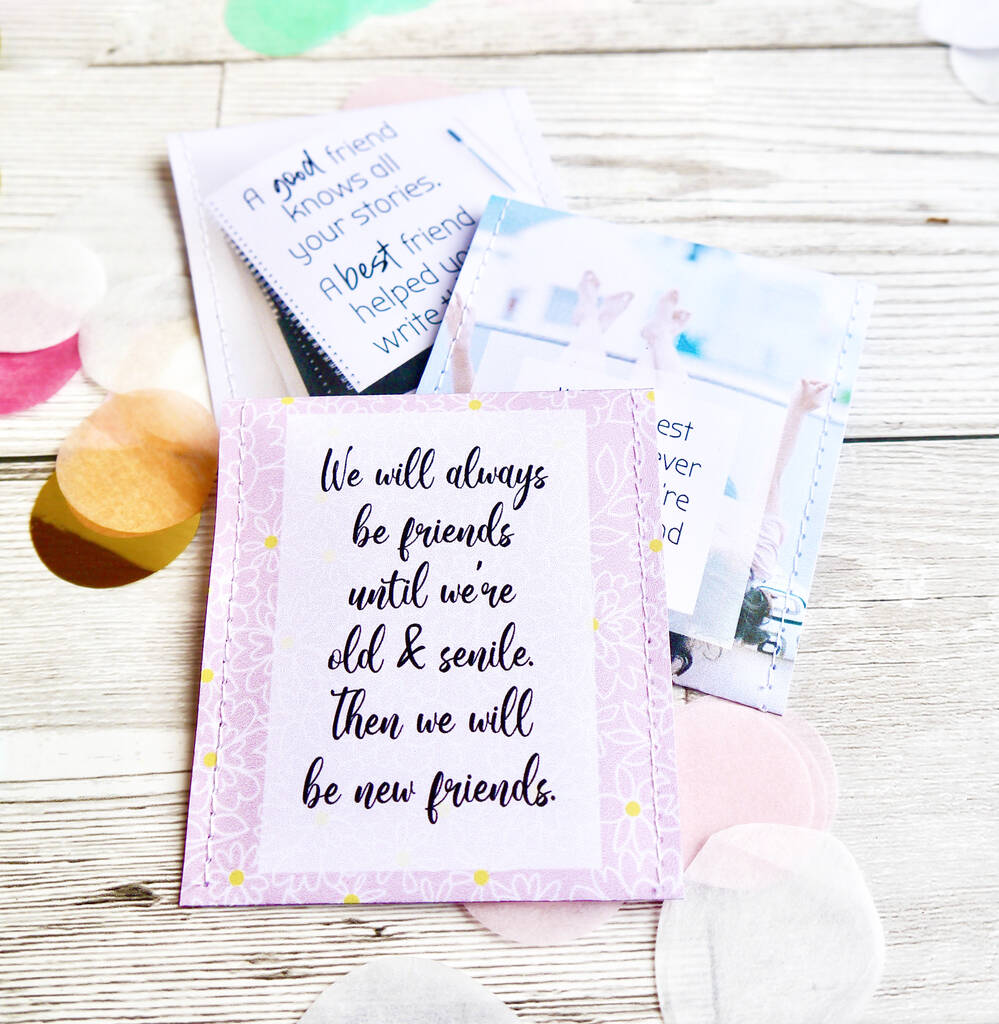 A good friend
knows all
your stories.
A best friend
helped
write
We will always
be friends
until we're
old & senile.
Then we will
be new friends.